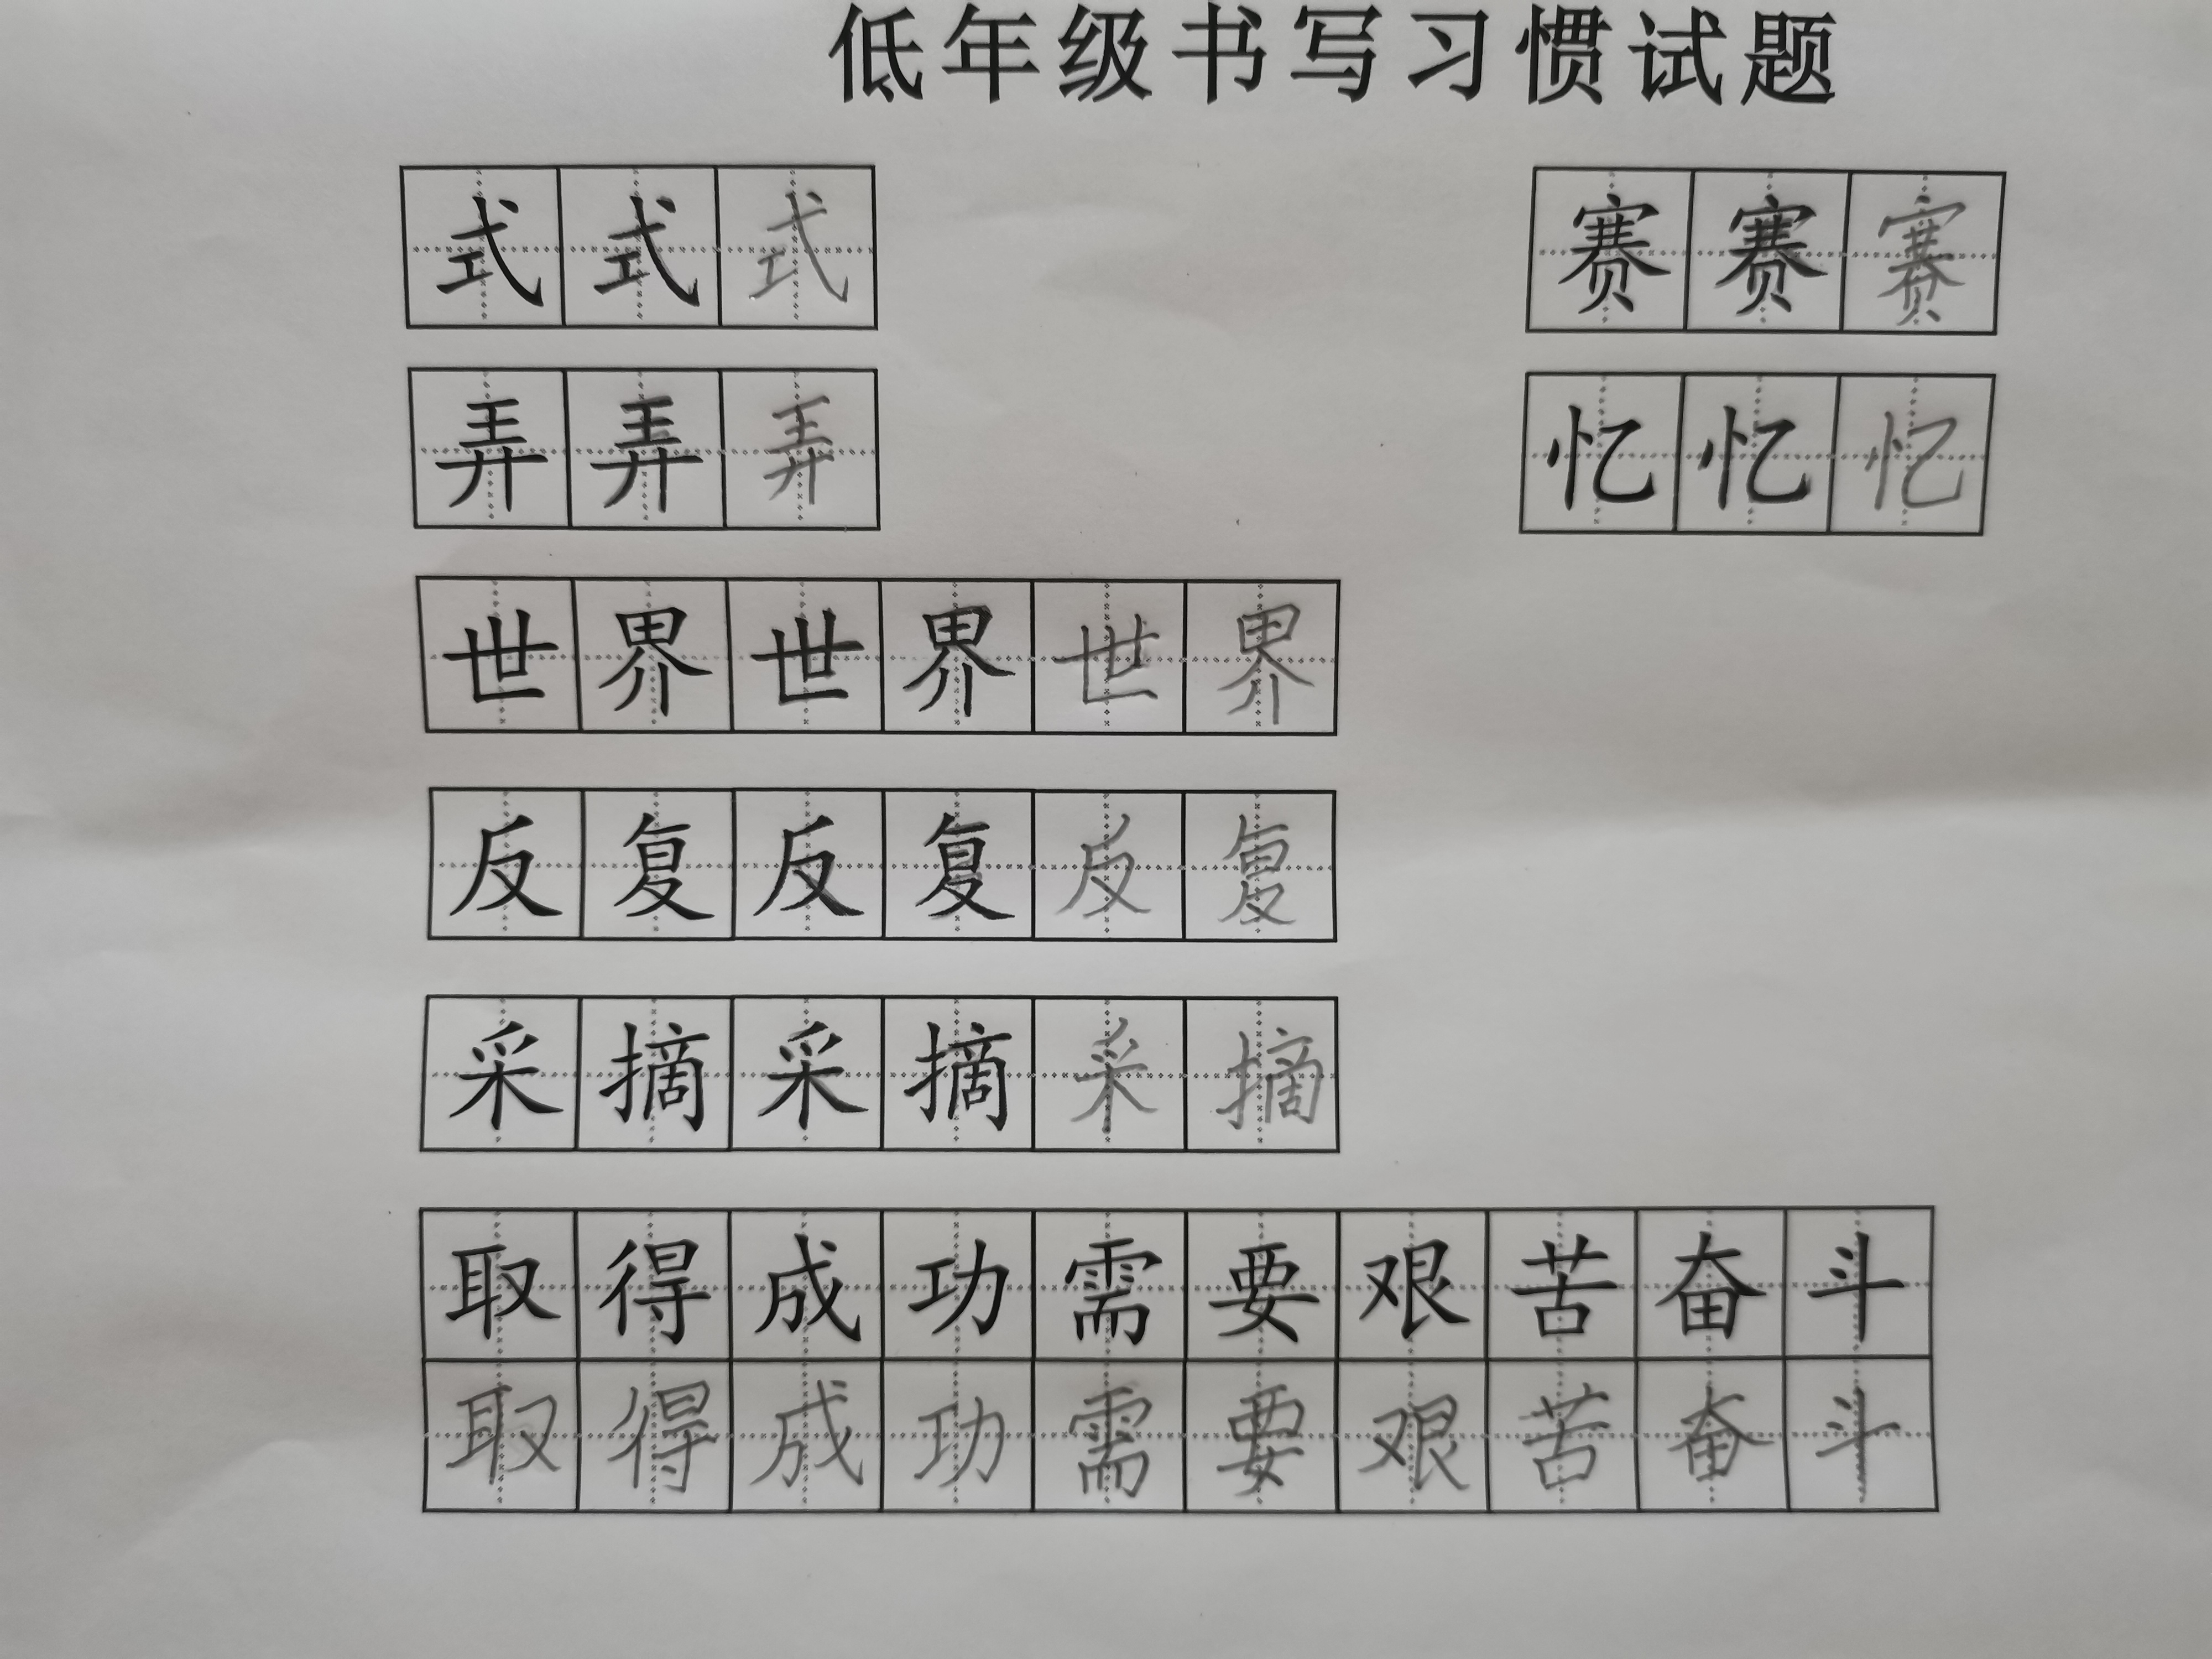 低年级书写习惯试题
式式式 赛赛赛
弄弄弄 忆忆忆
世界世界世界
反复反复反复
采摘采摘采摘
取得成功需要艰苦奋斗
取得成功需要艰苦奋斗